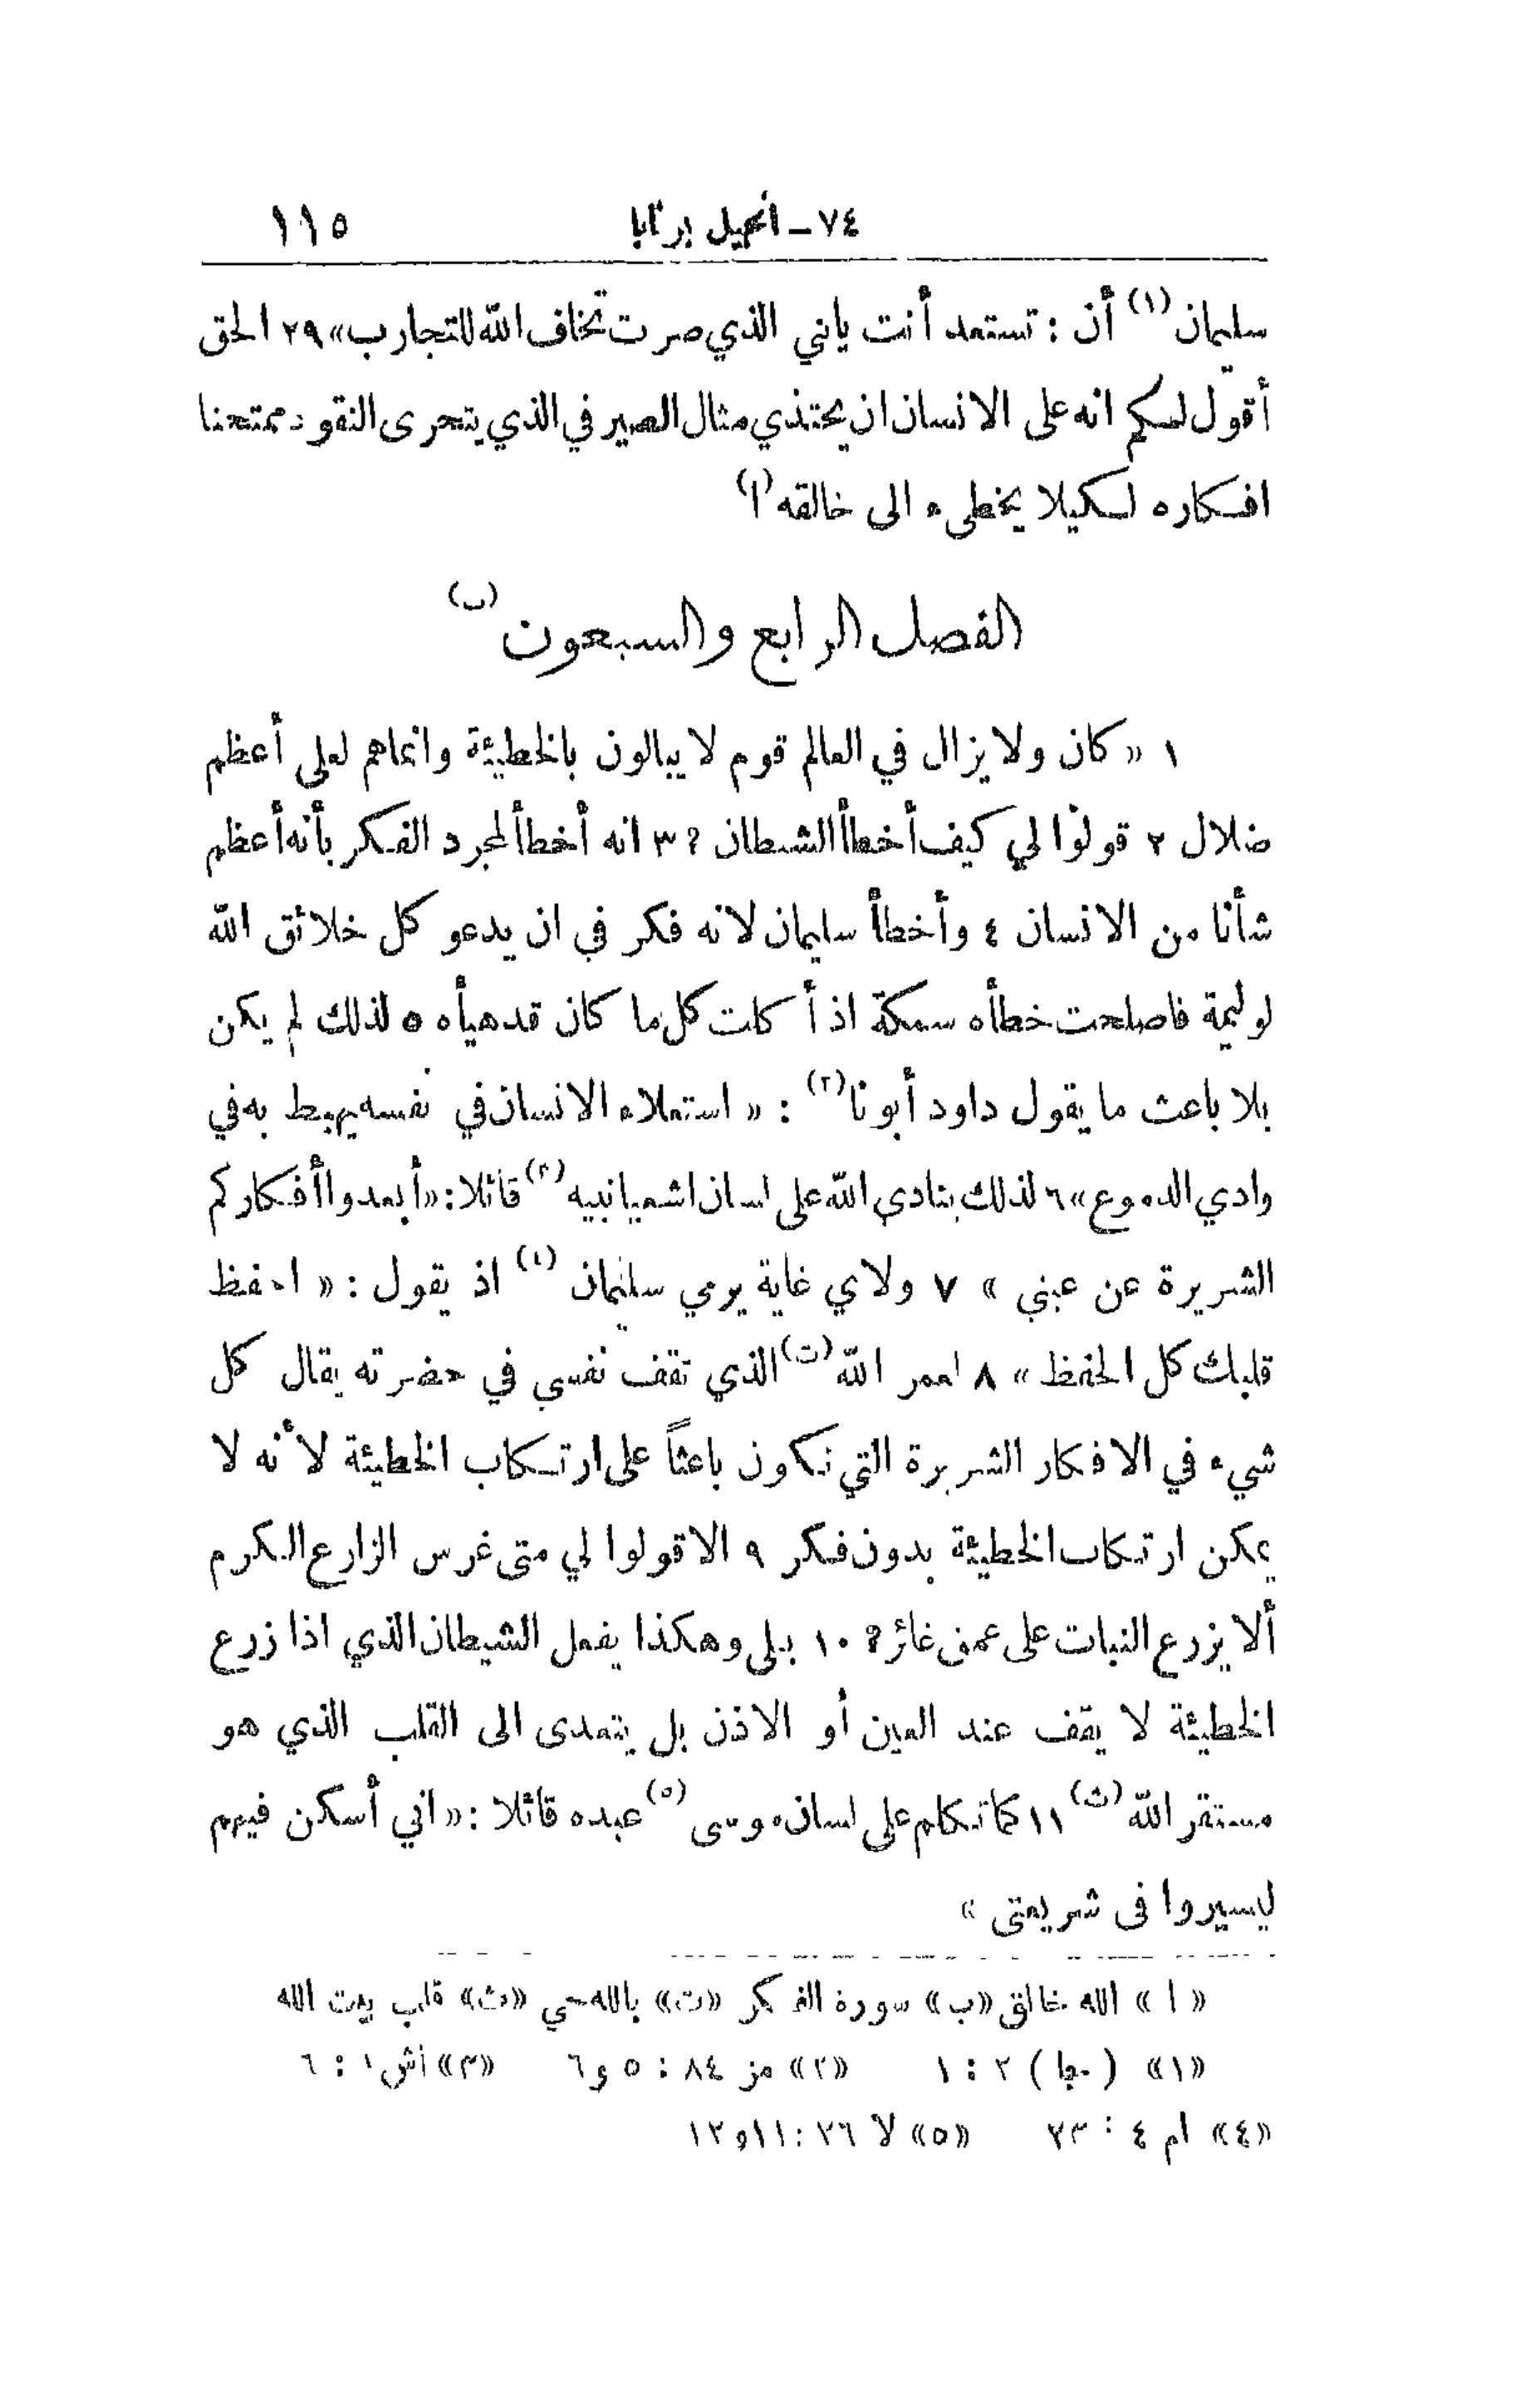 ٧٤ – انجيل برنابا ١١٥
سليمان (١) أن : تستعد أنت يابني الذي صرت تخاف الله للتجارب » ٢٩ الحق
أقول لكم انه على الانسان ان يحتذي مثال الصير في الذي يتحرى النقود ممتحنا
افكاره لكيلا يخطىء الى خالقه (ا)
الفصل الرابع والسبعون (ب)
١ « كان ولا يزال في العالم قوم لا يبالون بالخطيئة وانماهم لعلى أعظم
ضلال ٢ قولوا لي كيف أخطأ الشيطان ؟ ٣ انه أخطأ لمجرد الفكر بأنه أعظم
شأنا من الانسان ٤ وأخطأ سليمان لانه فكر في ان يدعو كل خلائق الله
لوليمة فاصلحت خطأه سمكة اذ أكلت كل ما كان قد هيأه ٥ لذلك لم يكن
بلا باعث ما يقول داود أبونا (٢) : « استعلاء الانسان في نفسه يهبط به في
وادي الدموع » ٦ لذلك ينادي الله على لسان اشعيا نبيه (٣) قائلا : « أبعدوا أفكاركم
الشريرة عن عيني » ٧ ولاي غاية يرمي سليمان (٤) اذ يقول : « احفظ
قلبك كل الحفظ » ٨ لعمر الله (ت) الذي تقف نفسي في حضرته يقال كل
شيء في الافكار الشريرة التي تكون باعثاً على ارتكاب الخطيئة لأنه لا
يمكن ارتكاب الخطيئة بدون فكر ٩ الا قولوا لي متى غرس الزارع الكرم
ألا يزرع النبات على عمق غائر ؟ ١٠ بلى وهكذا يفعل الشيطان الذي اذا زرع
الخطيئة لا يقف عند العين أو الاذن بل يتعدى الى القلب الذي هو
مستقر الله (ث) ١١ كما تكلم على لسان موسى (٥) عبده قائلا : « اني أسكن فيهم
ليسيروا في شريعتي »
« ا » الله خالق « ب » سورة الفكر « ت » بالله حي « ث » قلب بيت الله
«١» ( جا ) ٢ : ١ «٢» مز ٨٤ : ٥ و ٦ «٣» اش ١ : ٦
«٤» ام ٤ : ٢٣ «٥» لا ٢٦ : ١١ و ١٢